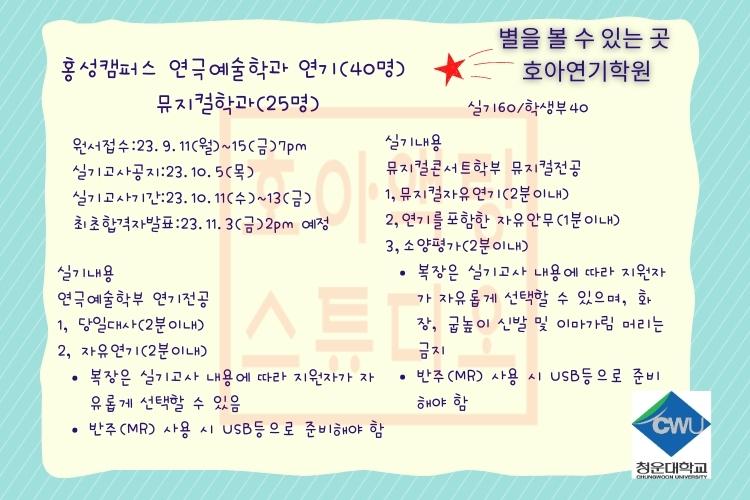 별을 볼 수 있는 곳
호아연기학원
홍성캠퍼스 연극예술학과 연기(40명)
뮤지컬학과(25명)
실기60/학생부40
원서접수:23.9.11(월)~15(금)7pm
실기고사공지:23.10.5(목)
실기고사기간:23.10.11(수)~13(금)
최초합격자발표:23.11.3(금)2pm 예정
실기내용
연극예술학부 연기전공
1, 당일대사(2분이내)
2, 자유연기(2분이내)
• 복장은 실기고사 내용에 따라 지원자가 자
유롭게 선택할 수 있음
• 반주(MR) 사용 시 USB등으로 준비해야 함
실기내용
뮤지컬콘서트학부 뮤지컬전공
1,뮤지컬자유연기(2분이내)
2,연기를포함한 자유안무(1분이내)
3,소양평가(2분이내)
• 복장은 실기고사 내용에 따라 지원자
가 자유롭게 선택할 수 있으며, 화
장, 굽높이 신발 및 이마가림 머리는
금지
• 반주(MR) 사용 시 USB등으로 준비
해야 함
호아액팅
스튜디오
CWU
청운대학교
CHUNGWOON UNIVERSITY